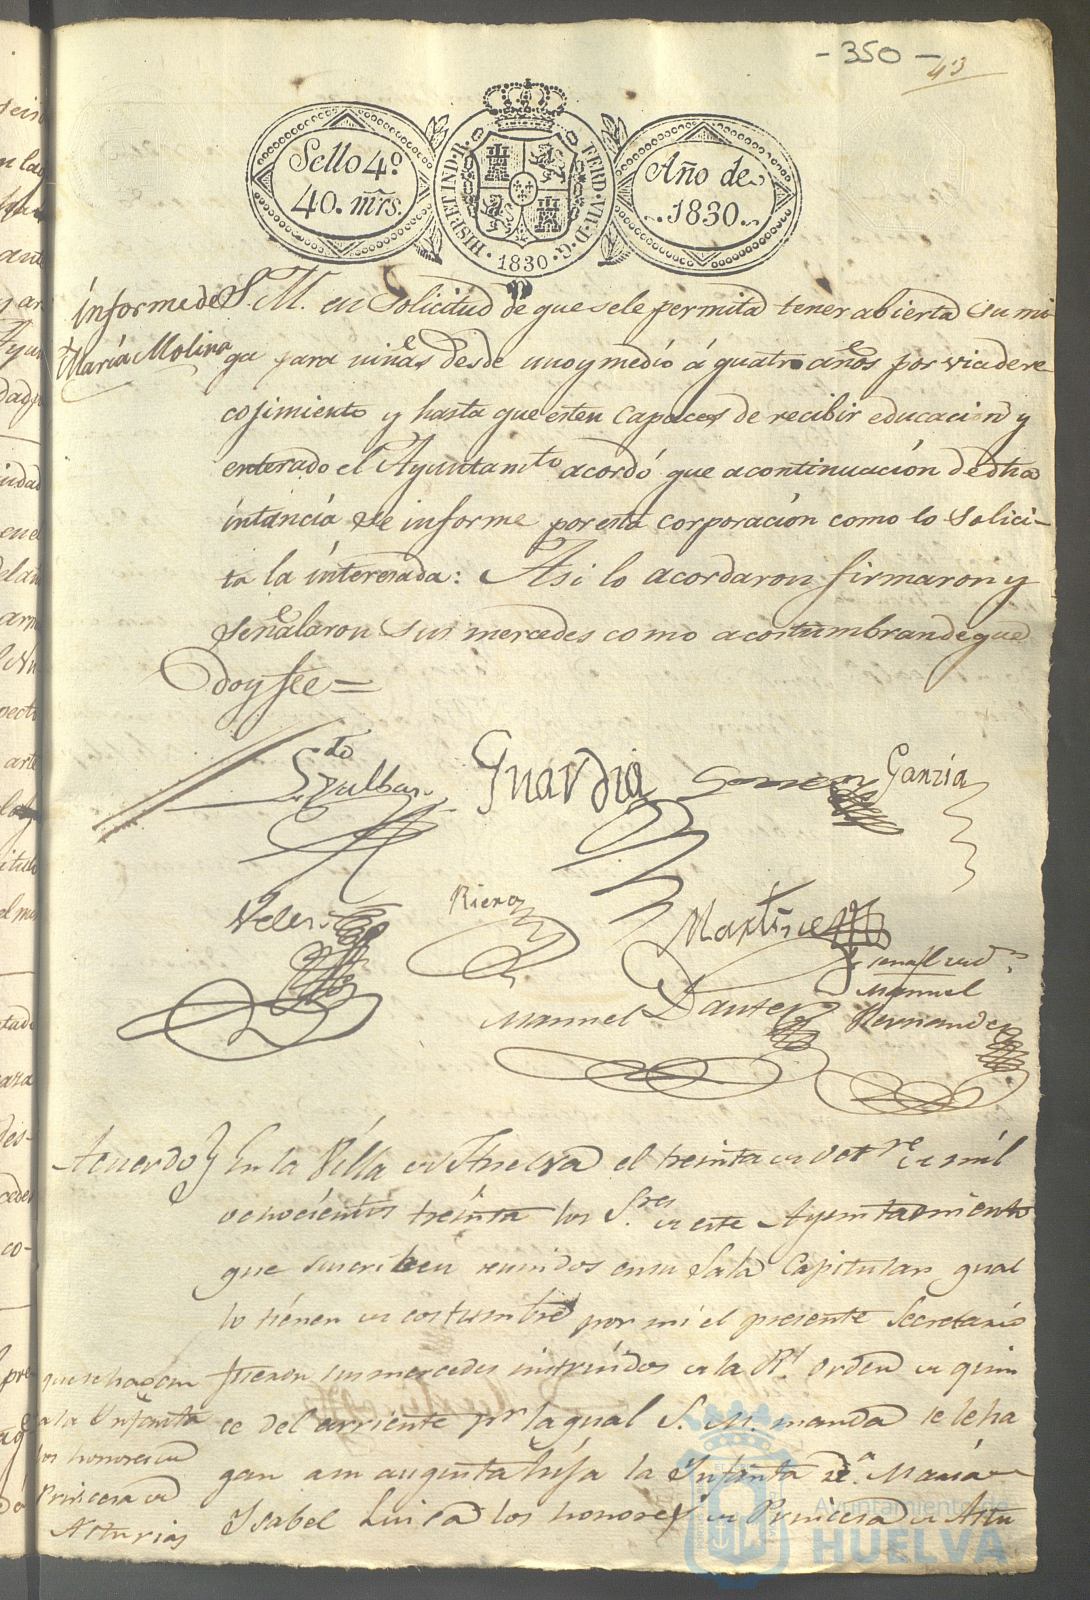 - 350 -
43
Sello 4º
40. mrs.
HISP. ET IND. R.
FERD. VII. D. G.
· 1830 ·
Año de
1830.
informe de
María Molina
S. M. en solicitud de que se le permita tener abierta su mi
ga para niñas desde uno y medio á quatro años por via de re
cojimiento y hasta que esten capaces de recibir educacion y
enterado el Ayuntamto acordó que acontinuación de dha
intáncia se informe por esta corporación como lo solici-
ta la interesada: Asi lo acordaron firmaron y
señalaron sus mercedes como acostumbran de que
doy fee =
Guardia
Garzia
Velez
Riera
Martinez
Manuel Dante
señal de
Manuel
Hernandez
Acuerdo
En la Villa de Huelva el treinta de Octre de mil
ochocientos treinta los Sres de este Ayuntamiento
que suscriben reunidos en su Sala Capitular qual
lo tienen de costumbre por mi el presente Secretario
fueron sus mercedes instruidos de la Rl orden de quin
ce del corriente pr la qual S. M. manda se le ha
gan a su augusta hija la Infanta Dª María
Isabel Luisa los honores de Princesa de Astu
que se hagan
a la Infanta
los honores de
Princesa de
Asturias
Ayuntamiento de
HUELVA